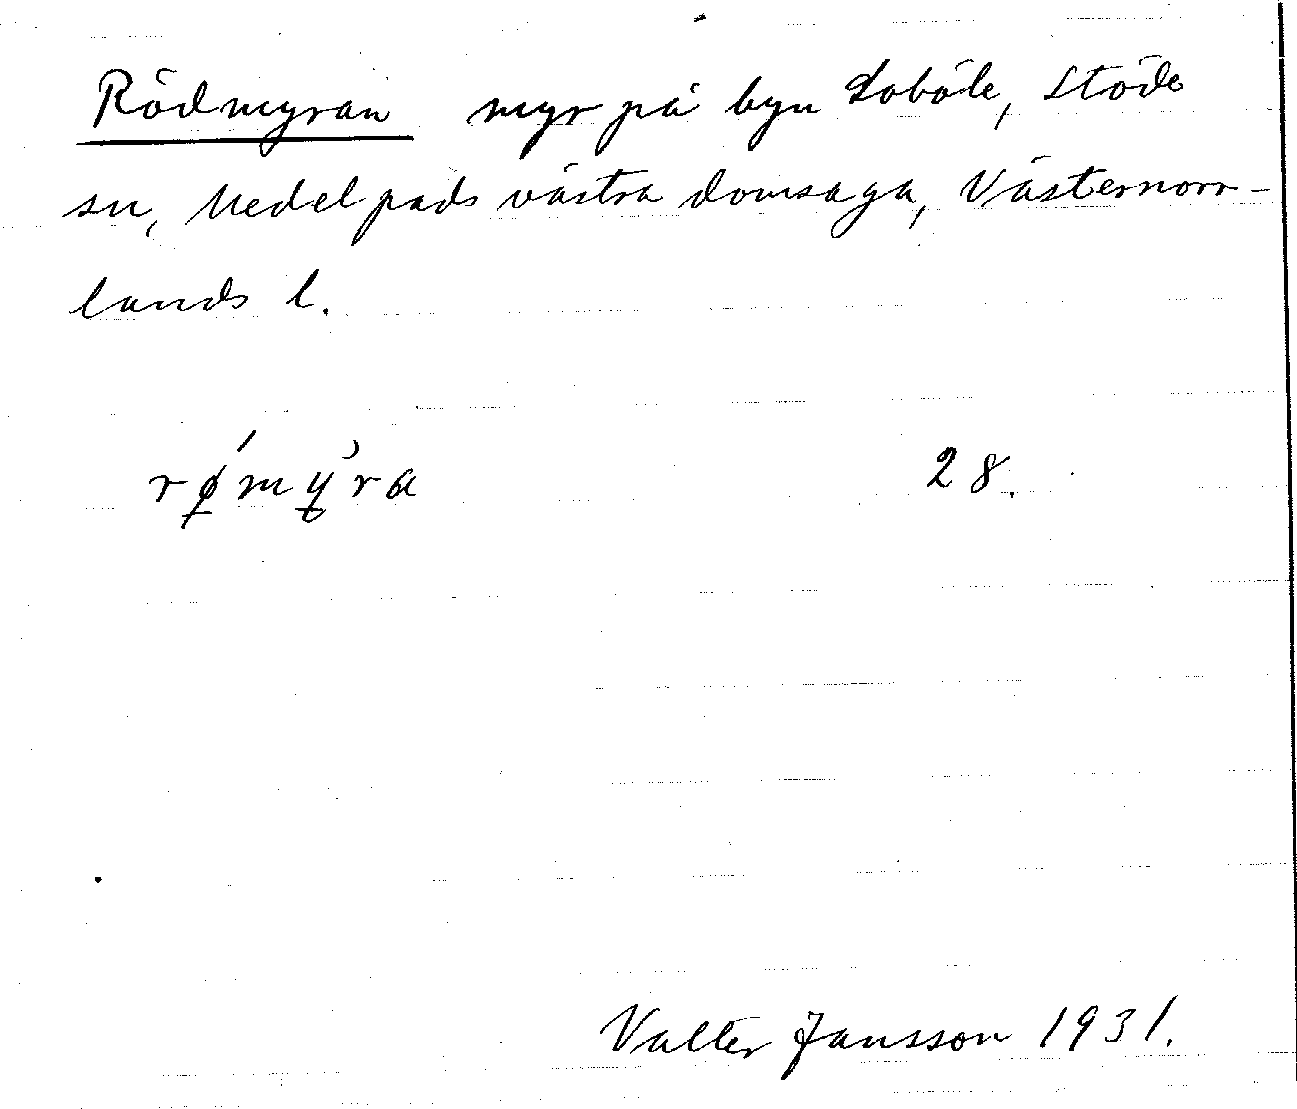 Rödmyran myr på byn Loböle, Stöde
sn, Medelpads västra domsaga, Västernorr-
lands l.
rǿ̠mỳ̠ra 28.
Valter Jansson 1931.